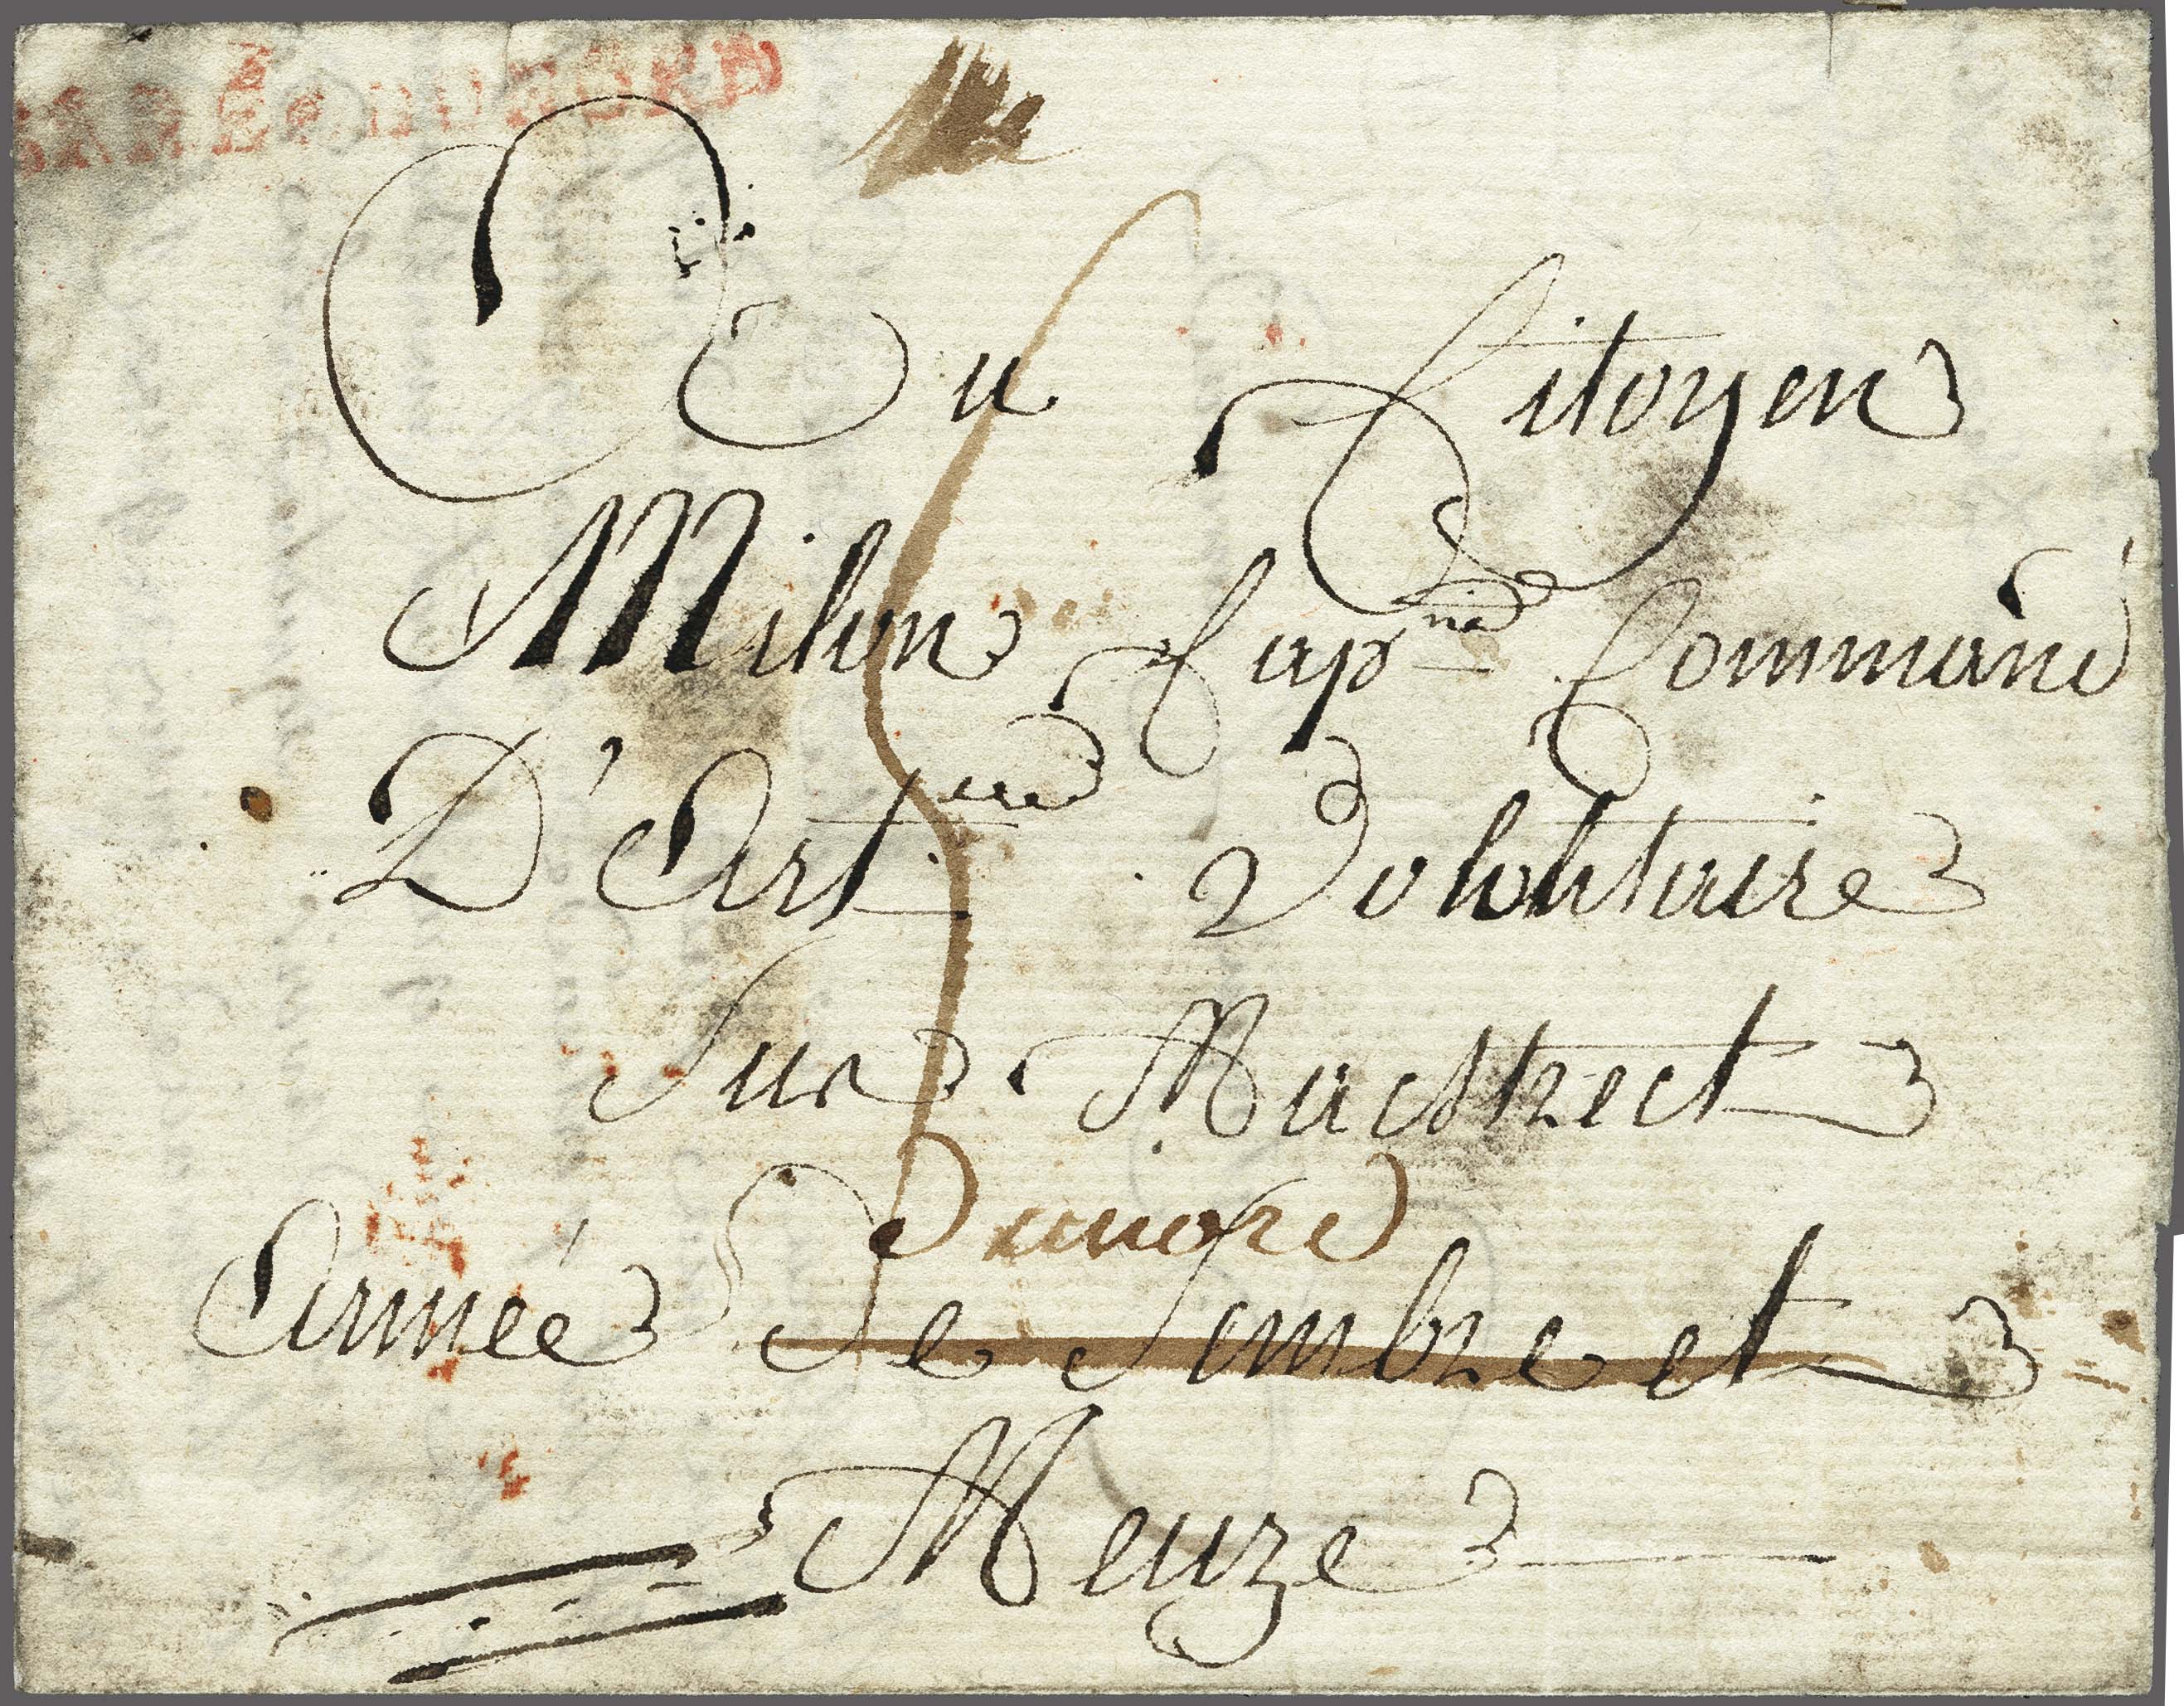 ARMÉE DU NORD
5
Au Citoyen
Milon Cap^ne Command^t
D'Art^rie Volontaire
Sur Mastrect
du nord
Armée De Sembre et
Meuze